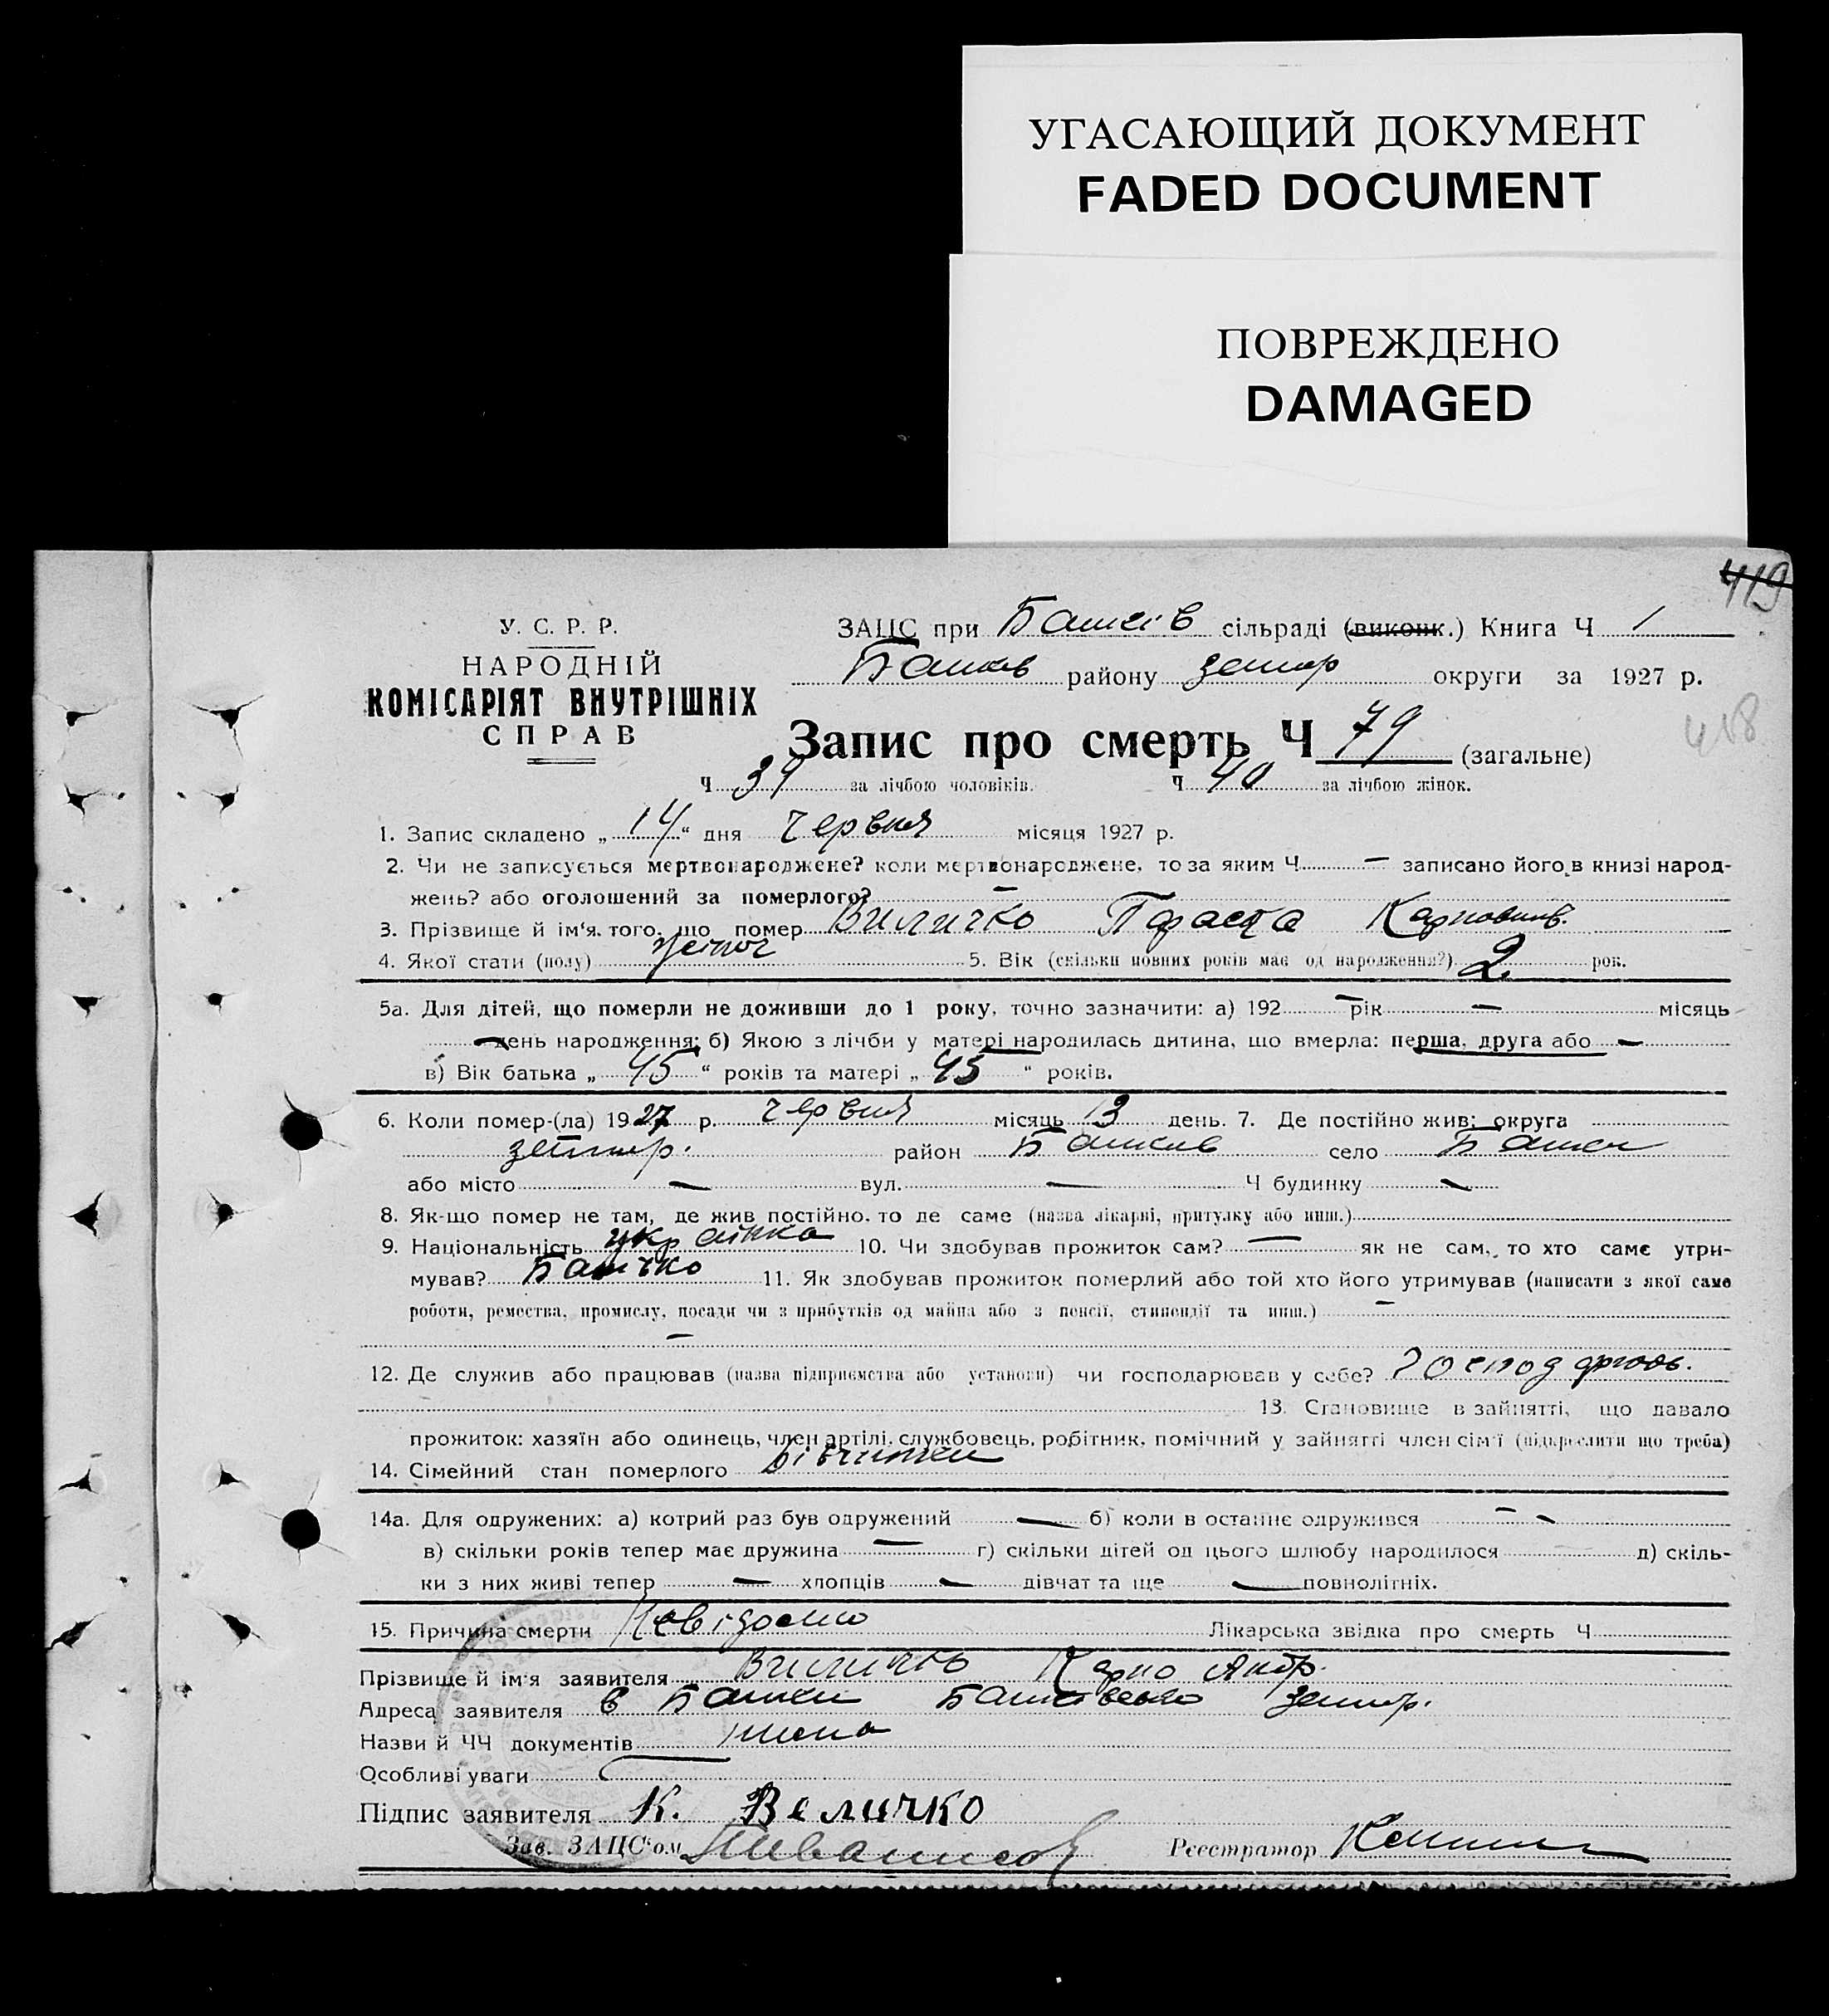 УГАСАЮЩИЙ ДОКУМЕНТ
FADED DOCUMENT
ПОВРЕЖДЕНО
DAMAGED
419
У. С. Р. Р.
НАРОДНІЙ
КОМІСАРІЯТ ВНУТРІШНІХ
СПРАВ
ЗАЦС при сільраді (виконк.) Книга Ч 1
району округи за 1927 р.
418
Запис про смерть Ч 79 (загальне)
Ч 39 за лічбою чоловіків. Ч 40 за лічбою жінок.
1. Запис складено „ 14 “ дня червня місяця 1927 р.
2. Чи не записується мертвонароджене? коли мертвонароджене, то за яким Ч — записано його в книзі народ-
жень? або оголошений за померлого? —
3. Прізвище й ім'я того, що помер Виличко Параска Карповна.
4. Якої стати (полу) жіноч 5. Вік (скільки повних років мав од народження?) 2 рок.
5а. Для дітей, що померли не доживши до 1 року, точно зазначити: а) 192 — рік — місяць
— день народження; б) Якою з лічби у матері народилась дитина, що вмерла: перша, друга або —
в) Вік батька „ 45 “ років та матері „ 45 “ років.
6. Коли помер-(ла) 1927 р. червня місяць 13 день. 7. Де постійно жив: округа
район село
або місто — вул. — Ч будинку —
8. Як-що помер не там, де жив постійно, то де саме (назва лікарні, притулку або инш.)
9. Національність українка 10. Чи здобував прожиток сам? — як не сам, то хто саме утри-
мував? Батько 11. Як здобував прожиток померлий або той хто його утримував (написати з якої саме
роботи, ремества, промислу, посади чи з прибутків од майна або з пенсії, стипендії та инш.) —
—
12. Де служив або працював (назва підприємства або установи) чи господарював у себе? Господарюв.
13. Становище в зайнятті, що давало
прожиток: хазяїн або одинець, член артілі, службовець, робітник, помічний у зайнятті член сім'ї (підкреслити що треба)
14. Сімейний стан померлого
14а. Для одружених: а) котрий раз був одружений — б) коли в останнє одружився — -
в) скільки років тепер має дружина — г) скільки дітей од цього шлюбу народилося д) скіль-
ки з них живі тепер — хлопців — дівчат та ще — повнолітніх.
15. Причина смерти Невідомо Лікарська звідка про смерть Ч
Прізвище й ім'я заявителя Виличко Карпо Андр.
Адреса заявителя
Назви й ЧЧ документів нема
Особливі уваги
Підпис заявителя К. Величко
Зав. ЗАЦС'ом Реєстратор